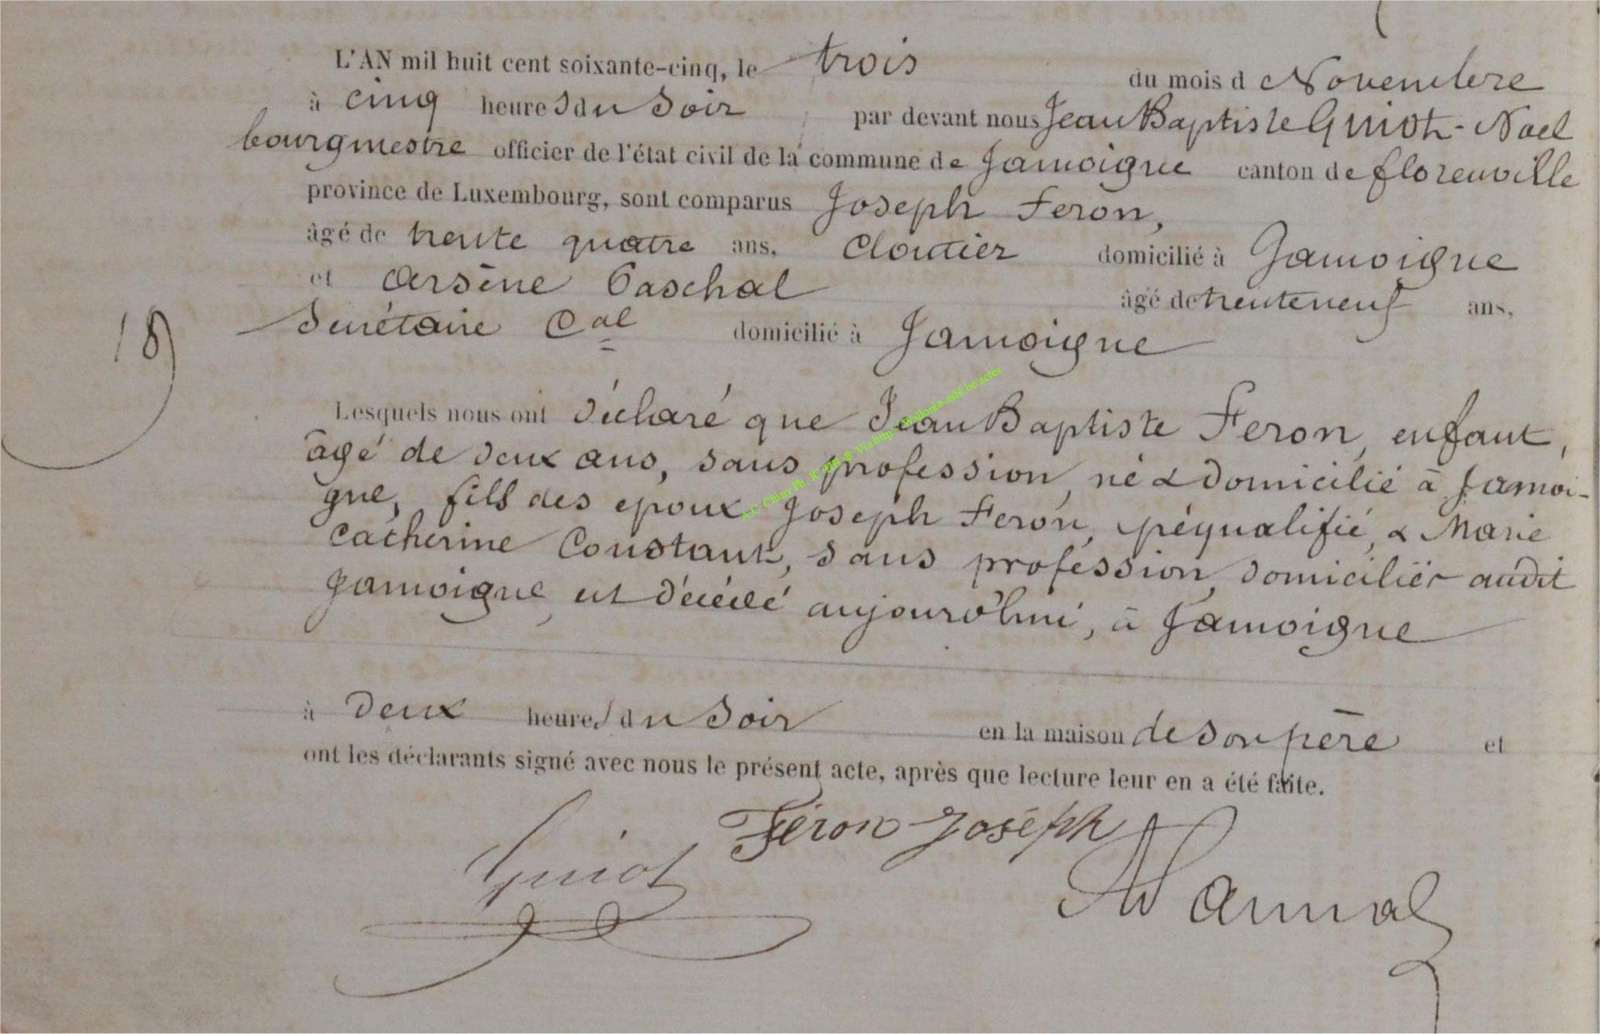 L'AN mil huit cent soixante-cinq, le trois du mois d Novembre
à cinq heures du soir par devant nous Jean Baptiste Guiot-Noel
bourgmestre officier de l'état civil de la commune de Jamoigne canton de florenville
province de Luxembourg, sont comparus Joseph Feron,
âgé de trente quatre ans, Cloutier domicilié à Jamoigne
et Arsène Paschal âgé de trente neuf ans,
Secrétaire Cal domicilié à Jamoigne
18
Lesquels nous ont déclaré que Jean Baptiste Feron, enfant,
âgé de deux ans, sans profession, né & domicilié à Jamoi-
gne, fils des epoux Joseph Feron, préqualifié, & Marie
Catherine Constant, sans profession, domiciliés audit
Jamoigne, est décédé aujourd'hui, à Jamoigne
à deux heures du soir en la maison de son père et
ont les déclarants signé avec nous le présent acte, après que lecture leur en a été faite.
Féron Joséph
Guiot